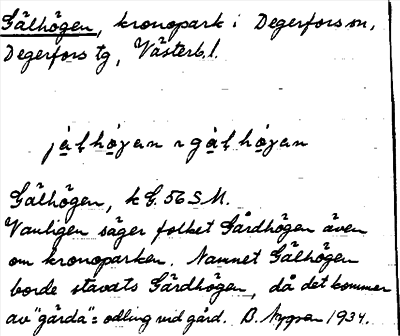 Gälhögen, kronopark i Degerfors sn,
Degerfors tg, Västerb. l.
jä̀ɽhö̱gan ~ gä̀ɽhö̱gan
Gälhögen, k G. 56 S.M.
Vanligen säger folket Gårdhögen även
om kronoparken. Namnet Gälhögen
borde stavats Gärdhögen, då det kommer
av "gärda" = odling vid gård. B. Nygren 1934.